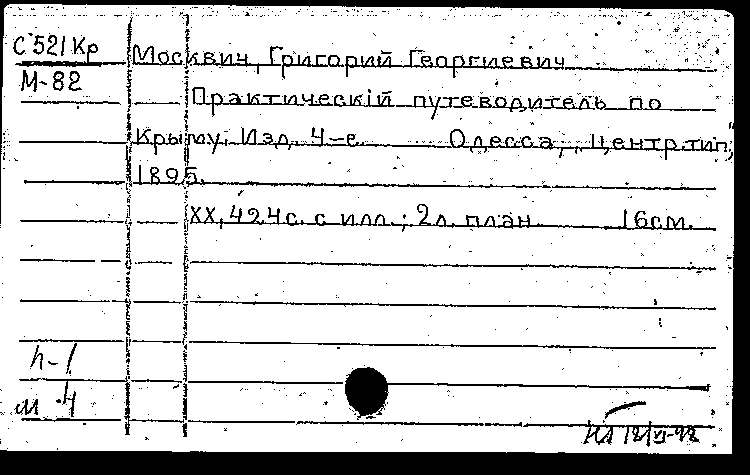 С 521 Кр
М-82
Москвич, Григорий Георгиевич
Практическій путеводитель по
Крыму. Изд. 4-е. Одесса, "Центр.тип",
1895.
XX, 424 с. с илл.; 2 л. план 16 см.
п-1
м 4